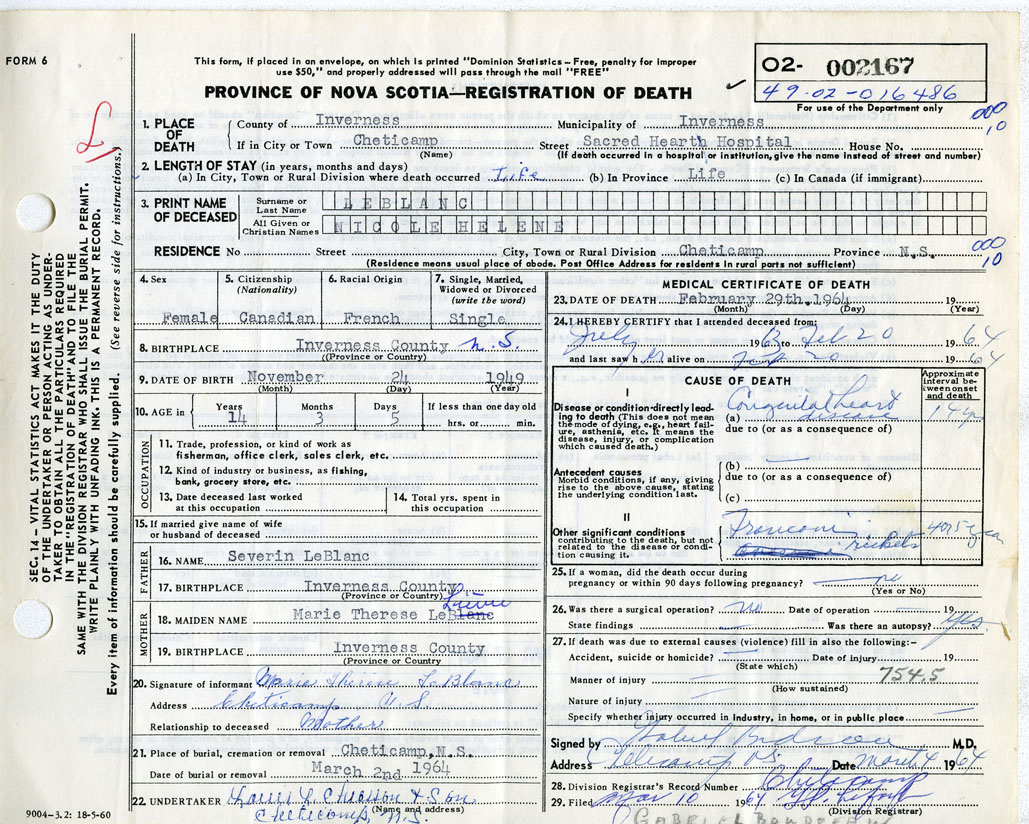 FORM 6
This form, if placed in an envelope, on which is printed "Dominion Statistics – Free, penalty for improper
use $50," and properly addressed will pass through the mail "FREE"
PROVINCE OF NOVA SCOTIA—REGISTRATION OF DEATH
02- 002167
49-02-016486
For use of the Department only
000
10
L
SEC. 14 – VITAL STATISTICS ACT MAKES IT THE DUTY
OF THE UNDERTAKER OR PERSON ACTING AS UNDER-
TAKER TO OBTAIN ALL THE PARTICULARS REQUIRED
IN THE "REGISTRATION OF DEATH" AND TO FILE THE
SAME WITH THE DIVISION REGISTRAR WHO SHALL ISSUE THE BURIAL PERMIT.
WRITE PLAINLY WITH UNFADING INK. THIS IS A PERMANENT RECORD.
Every item of information should be carefully supplied. (See reverse side for instructions.)
1. PLACE OF DEATH
County of Inverness Municipality of Inverness
If in City or Town Cheticamp Street Sacred Hearth Hospital House No.
(Name) (If death occurred in a hospital or institution, give the name instead of street and number)
2. LENGTH OF STAY (in years, months and days)
(a) In City, Town or Rural Division where death occurred Life (b) In Province Life (c) In Canada (if immigrant)
3. PRINT NAME OF DECEASED
Surname or Last Name LEBLANC
All Given or Christian Names NICOLE HELENE
RESIDENCE No Street City, Town or Rural Division Cheticamp Province N.S.
000
10
(Residence means usual place of abode. Post Office Address for residents in rural parts not sufficient)
4. Sex Female
5. Citizenship (Nationality) Canadian
6. Racial Origin French
7. Single, Married, Widowed or Divorced (write the word) Single
8. BIRTHPLACE Inverness County N.S.
((Province or Country)
9. DATE OF BIRTH November 24 1949
(Month) (Day) (Year)
10. AGE in Years 14 Months 3 Days 5 If less than one day old
hrs. or min.
OCCUPATION
11. Trade, profession, or kind of work as
fisherman, office clerk, sales clerk, etc.
12. Kind of industry or business, as fishing,
bank, grocery store, etc.
13. Date deceased last worked
at this occupation
14. Total yrs. spent in
this occupation
15. If married give name of wife
or husband of deceased
FATHER
16. NAME Severin LeBlanc
17. BIRTHPLACE Inverness County
(Province or Country)
MOTHER
18. MAIDEN NAME Marie Therese LeBlanc
19. BIRTHPLACE Inverness County
(Province or Country
20. Signature of informant Marie Thérèse LeBlanc
Address Cheticamp N.S.
Relationship to deceased Mother
21. Place of burial, cremation or removal Cheticamp, N.S.
Date of burial or removal March 2nd 1964
22. UNDERTAKER & Son
(Name and address)
Cheticamp, N.S.
9004-3.2: 18-5-60
MEDICAL CERTIFICATE OF DEATH
23. DATE OF DEATH February 29th. 1964 19
(Month) (Day) (Year)
24. I HEREBY CERTIFY that I attended deceased from:
July 1963 to Feb 20 1964
and last saw her alive on Feb 20 1964
CAUSE OF DEATH
Approximate
interval be-
tween onset
and death
I
Disease or condition directly lead-
ing to death (This does not mean
the mode of dying, e.g., heart fail-
ure, asthenia, etc. It means the
disease, injury, or complication
which caused death.)
(a) Congenital heart disease 14 yrs
due to (or as a consequence of)
Antecedent causes
Morbid conditions, if any, giving
rise to the above cause, stating
the underlying condition last.
(b)
due to (or as a consequence of)
(c)
II
Other significant conditions
contributing to the death, but not
related to the disease or condi-
tion causing it.
Franconi rickets 4 or 5 year
25. If a woman, did the death occur during
pregnancy or within 90 days following pregnancy? no
(Yes or No)
26. Was there a surgical operation? No Date of operation 19
State findings Was there an autopsy? Yes
27. If death was due to external causes (violence) fill in also the following:–
Accident, suicide or homicide? Date of injury 19
(State which)
Manner of injury 754.5
(How sustained)
Nature of injury
Specify whether injury occurred in Industry, in home, or in public place
Signed by M.D.
Address Date March 4 1964
28. Division Registrar's Record Number Cheticamp
29. Filed Mar 10 1964
(Division Registrar)
GABRIEL BOUDREAU